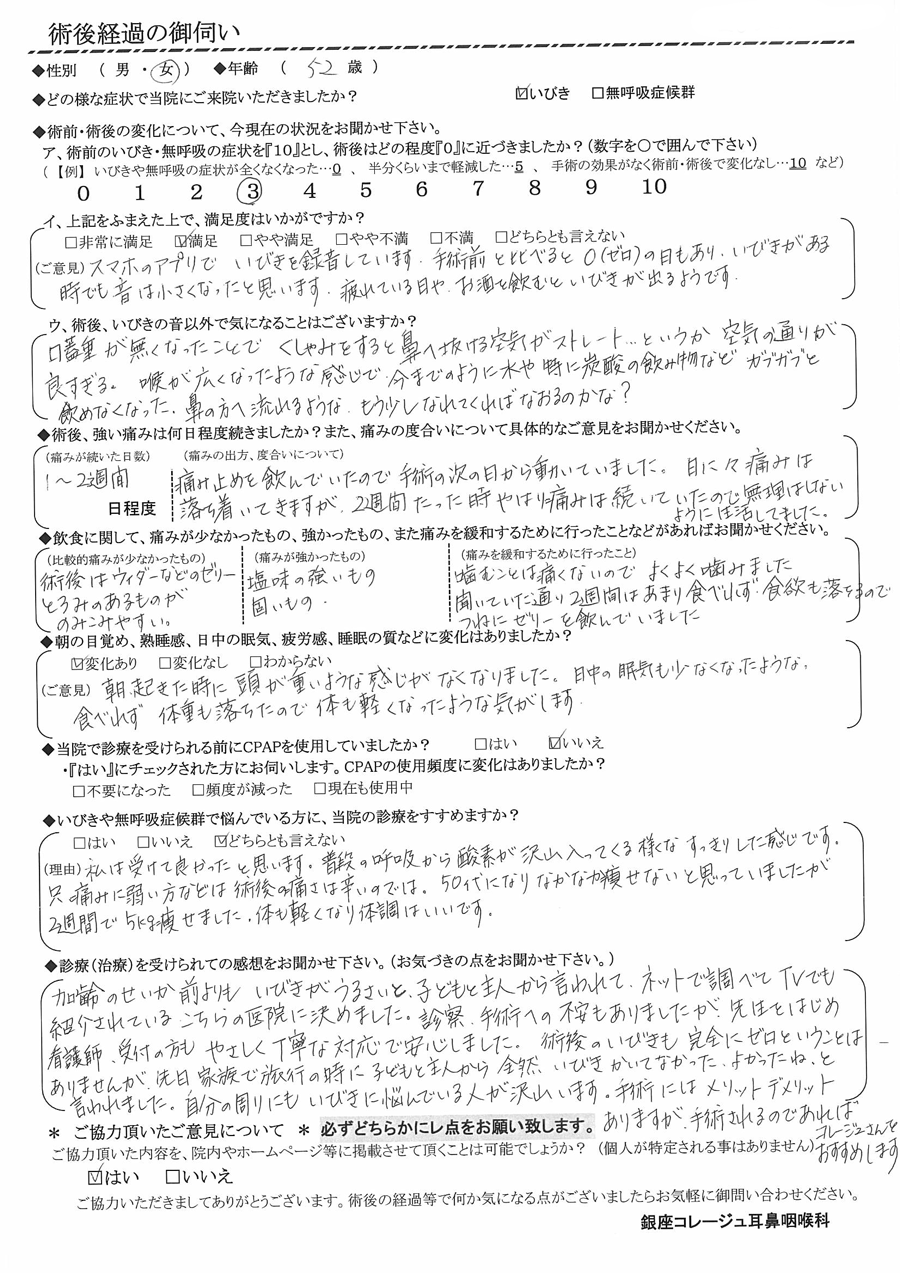 術後経過の御伺い
◆性別 ( 男 ・ 女 ) ◆年齢 ( 52 歳 )
◆どの様な症状で当院にご来院いただきましたか? ☑いびき □無呼吸症候群
◆術前・術後の変化について、今現在の状況をお聞かせ下さい。
ア、術前のいびき・無呼吸の症状を『10』とし、術後はどの程度『0』に近づきましたか?(数字を〇で囲んで下さい)
(【例】 いびきや無呼吸の症状が全くなくなった…0 、 半分くらいまで軽減した…5 、 手術の効果がなく術前・術後で変化なし…10 など)
0 1 2 ③ 4 5 6 7 8 9 10
イ、上記をふまえた上で、満足度はいかがですか?
□非常に満足 ☑満足 □やや満足 □やや不満 □不満 □どちらとも言えない
(ご意見) スマホのアプリで いびきを録音しています。手術前と比べると 0(ゼロ)の日もあり、いびきがある
時でも音は小さくなったと思います。疲れている日や、お酒を飲むといびきが出るようです。
ウ、術後、いびきの音以外で気になることはございますか?
口蓋垂が無くなったことで くしゃみをすると鼻へ抜ける空気がストレート…というか 空気の通りが
良すぎる。 喉が広くなったような感じで、今までのように水や 特に炭酸の飲み物など ガブガブと
飲めなくなった。鼻の方へ流れるような。もう少しなれてくればなおるのかな?
◆術後、強い痛みは何日程度続きましたか?また、痛みの度合いについて具体的なご意見をお聞かせください。
(痛みが続いた日数) (痛みの出方、度合いについて)
1〜2週間 日程度
痛み止めを飲んでいたので 手術の次の日から動いていました。 日に々痛みは
落ち着いてきますが、2週間たった時やはり痛みは続いていたので無理はしない
ように生活してました。
◆飲食に関して、痛みが少なかったもの、強かったもの、また痛みを緩和するために行ったことなどがあればお聞かせください。
(比較的痛みが少なかったもの) (痛みが強かったもの) (痛みを緩和するために行ったこと)
術後はウィダーなどのゼリー 塩味の強いもの 噛むことは痛くないので よくよく噛みました
とろみのあるものが 固いもの。 聞いていた通り2週間はあまり食べれず、食欲も落ちるので
のみこみやすい。 つねにゼリーを飲んでいました
◆朝の目覚め、熟睡感、日中の眠気、疲労感、睡眠の質などに変化はありましたか?
☑変化あり □変化なし □わからない
(ご意見) 朝、起きた時に 頭が重いような感じがなくなりました。日中の眠気も少なくなったような。
食べれず 体重も落ちたので 体も軽くなったような気がします。
◆当院で診療を受けられる前にCPAPを使用していましたか? □はい ☑いいえ
・『はい』にチェックされた方にお伺いします。CPAPの使用頻度に変化はありましたか?
□不要になった □頻度が減った □現在も使用中
◆いびきや無呼吸症候群で悩んでいる方に、当院の診療をすすめますか?
□はい □いいえ ☑どちらとも言えない
(理由) 私は受けて良かったと思います。普段の呼吸から酸素が沢山入ってくる様な すっきりした感じです。
只、痛みに弱い方などは 術後の痛さは辛いのでは。50代になり なかなか痩せないと思っていましたが
2週間で5kg痩せました。体も軽くなり体調はいいです。
◆診療(治療)を受けられての感想をお聞かせ下さい。(お気づきの点をお聞かせ下さい。)
加齢のせいか 前よりも いびきがうるさいと、子どもと主人から言われて、ネットで調べて TVでも
紹介されている こちらの医院に決めました。診察、手術への不安もありましたが、先生をはじめ
看護師、受付の方も やさしく丁寧な対応で安心しました。 術後のいびきも 完全にゼロということは
ありませんが、先日 家族で旅行の時に 子どもと主人から 全然、いびきかいてなかった、よかったね、と
言われました。自分の周りにも いびきに悩んでいる人が沢山います。手術には メリットデメリット
ありますが、手術されるのであれば
コレージュさんを
おすすめします
＊ ご協力頂いたご意見について ＊ 必ずどちらかにレ点をお願い致します。
ご協力頂いた内容を、院内やホームページ等に掲載させて頂くことは可能でしょうか? (個人が特定される事はありません)
☑はい □いいえ
ご協力いただきましてありがとうございます。術後の経過等で何か気になる点がございましたらお気軽に御問い合わせください。
銀座コレージュ耳鼻咽喉科